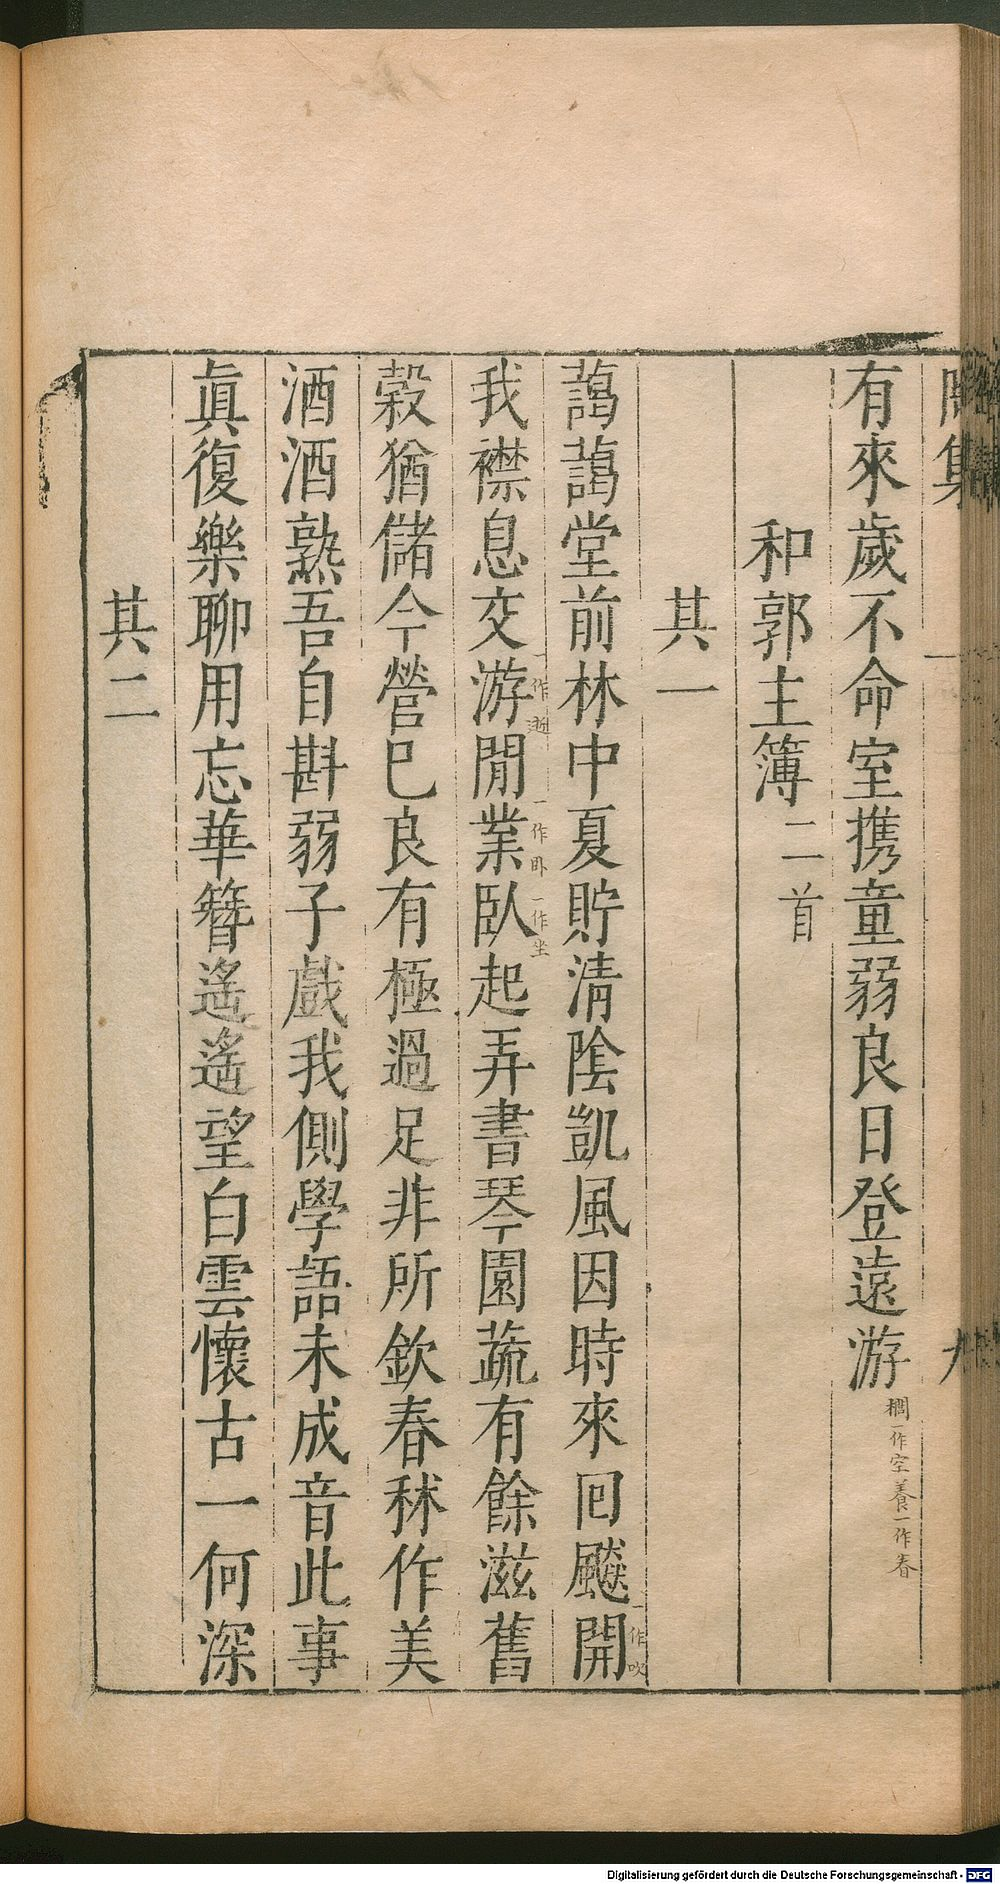 有來歲不命室携童弱良日登遠游 櫚一作空養一作春
和郭主簿二首
其一
藹藹堂前林中夏貯清陰凱風因時來回飇開 一作吹
我襟息交游 一作逝 閒業 一作卧 臥 一作坐 起弄書琴園蔬有餘滋舊
穀猶儲今營已良有極過足非所欽春秫作美
酒酒熟吾自斟弱子戲我側學語未成音此事
眞復樂聊用忘華簪遙遙望白雲懷古一何深
其二
Digitalisierung gefördert durch die Deutsche Forschungsgemeinschaft - DFG